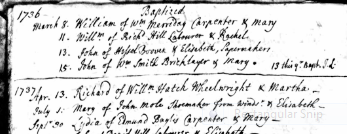 1736 Baptized
March 8. William of Wm Merriday Carpenter & Mary
11. Willm of Richd Hill Labourer & Rachel
13. John of Hessel Brewer & Elizabeth, Papermaker
15. John of Wm Smith Bricklayer & Mary. 13 this yr
1737
Apr. 13. Richard of Willm Hatch Wheelwright & Martha
July 3. Mary of John Mole Shoemaker from & Elizabeth
Sept. 30 Lydia of Edmund Bayles Carpenter & Mary
Hill Labourer & Elizabeth